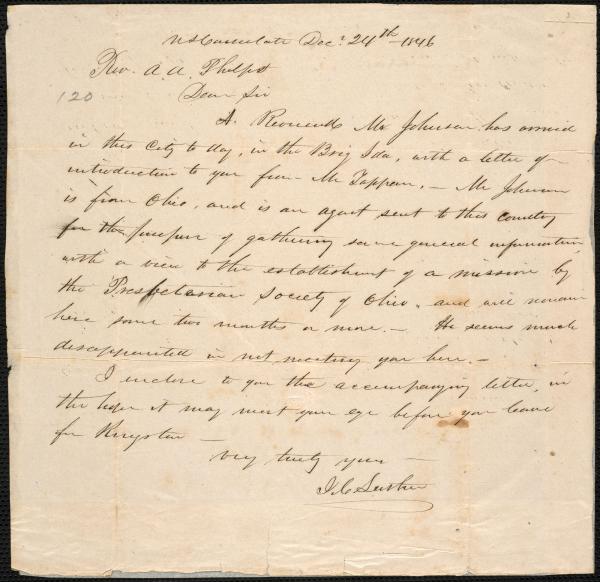 US Consulate Decr 24th 1846
Rev. A. A. Phelps
120
Dear Sir
A. Reverend Mr Johnson has arrived
in this City to day, in the Brig Ida, with a letter of
introduction to you from Mr Tappan, — Mr Johnson
is from Ohio, and is an agent sent to this country
for the purpose of gathering some general information
with a view to the establishment of a mission by
the Presbetarian Society of Ohio, and will remain
here some two months or more. — He seems much
disappointed in not meeting you here. —
I enclose to you the accompanying letter, in
the hope it may meet your eye before you leave
for Kingston —
Very truly yours —